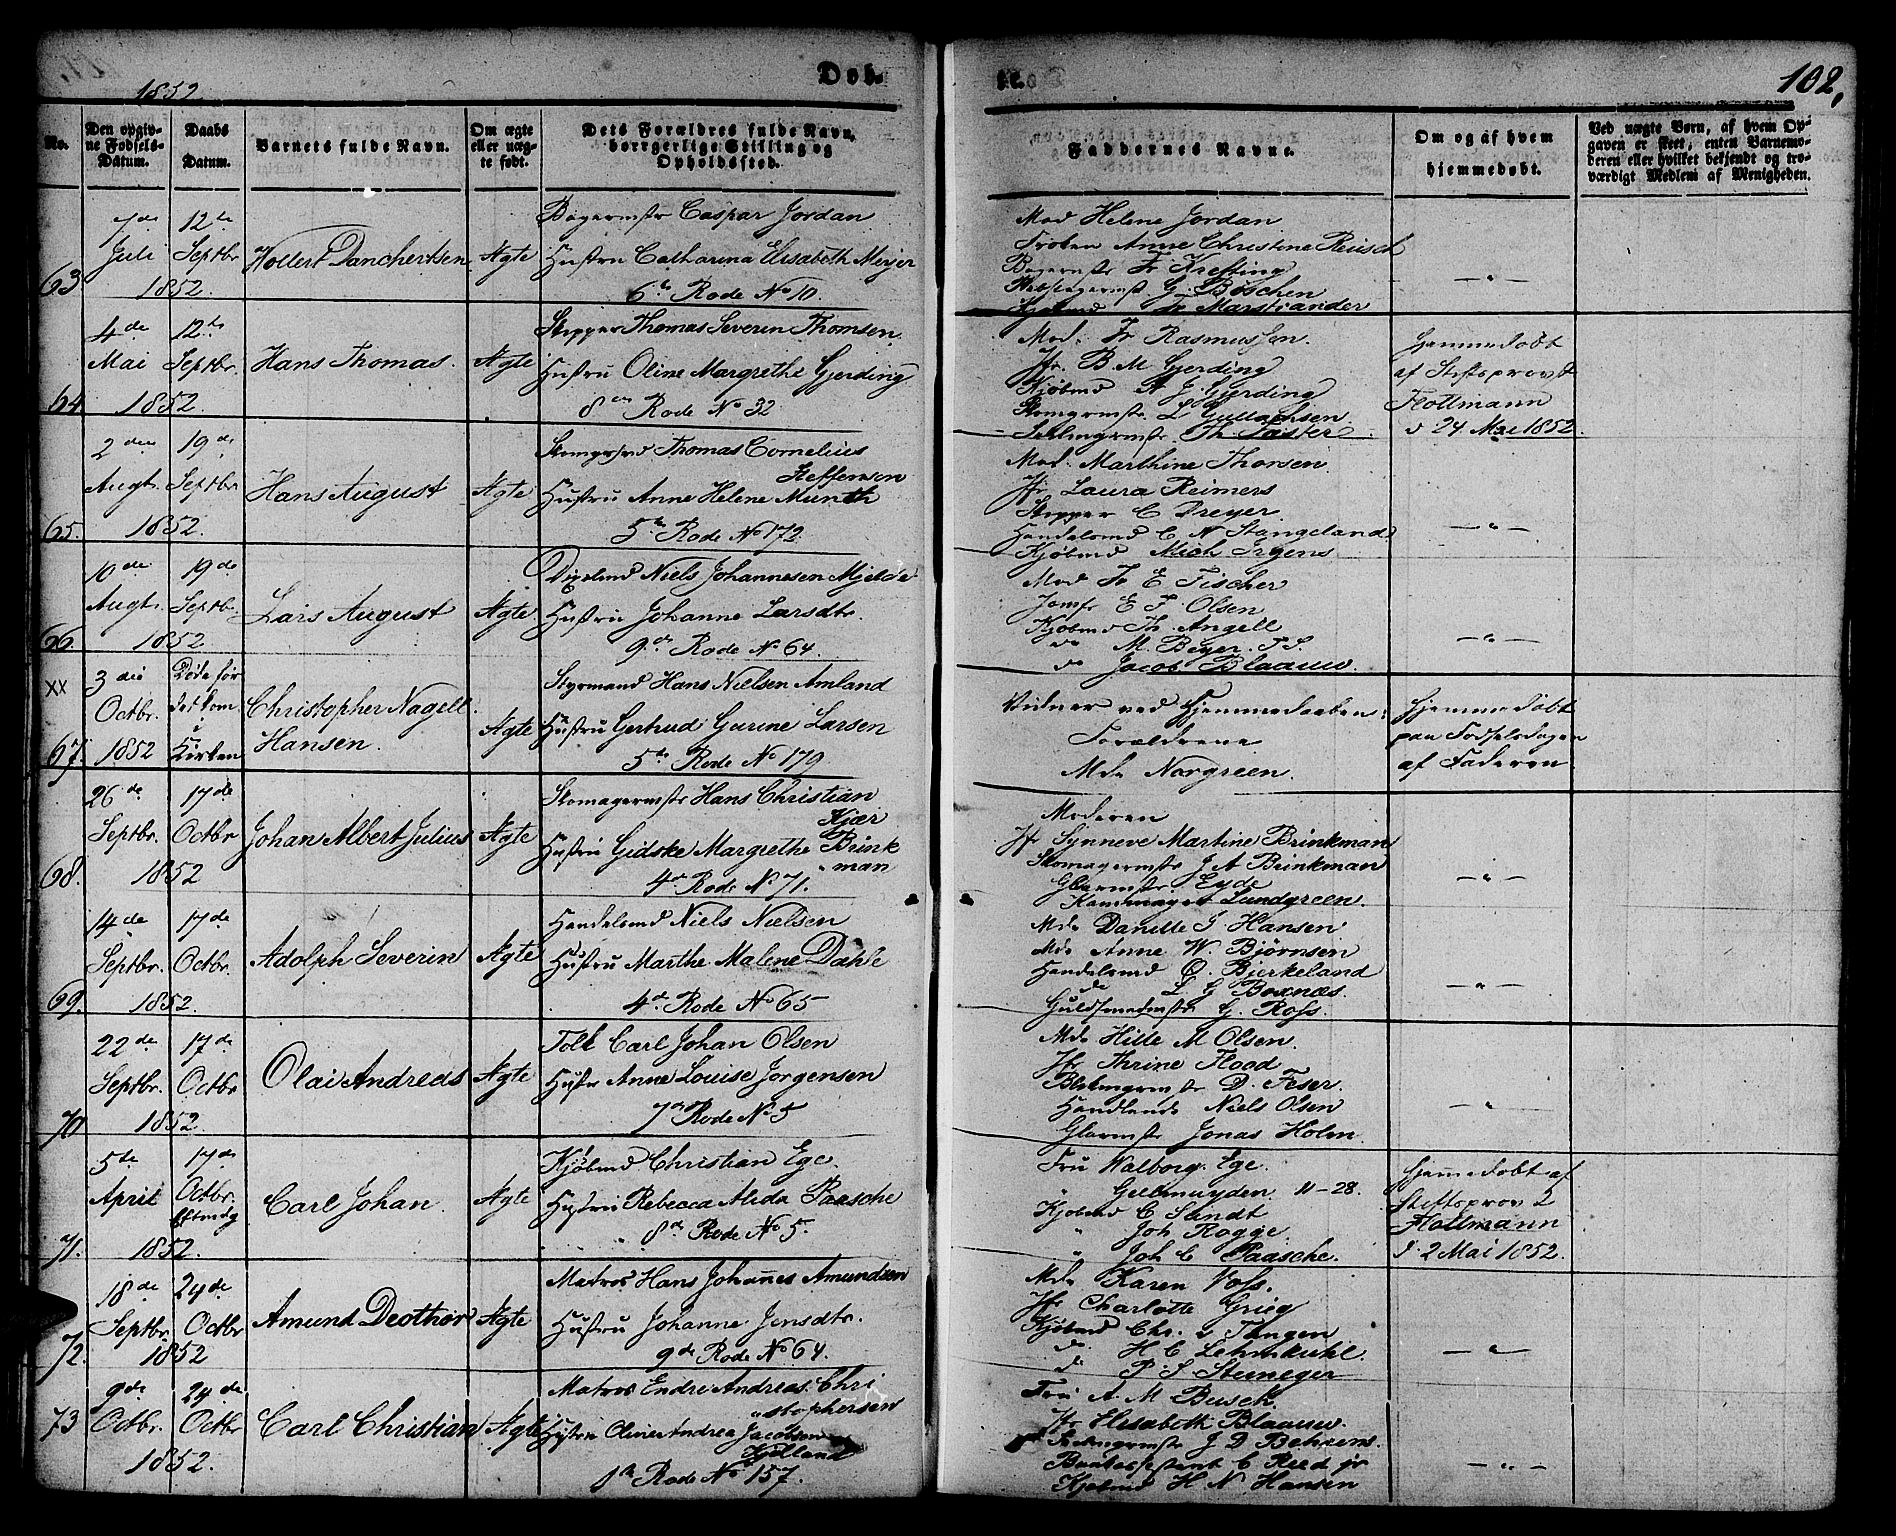 1852.
Døb-
te.
102,
No.
Den opgiv-
ne Fødsels-
Datum.
Daabs
Datum.
Barnets fulde Navn.
Om ægte
eller uæg-
te født.
Dets Forældres fulde Navn,
borgerlige Stilling og
Opholdssted.
Faddernes Navne.
Om og af hvem
hjemmedøbt.
Ved uægte Børn, af hvem Op-
gaven er skeet, enten Barnemo-
deren eller hvilket bekjendt og tro-
værdigt Medlem af Menigheden.
63
7de
Juli
1852.
12te
Septbr
Hollert Danchertsen
Ægte
Bagermstr Caspar Jordan
Hustru Catharina Elisabeth Meyer
6te Rode No 10.
Mad Helene Jordan
Frøken Anne Christine Reusch
Bagermstr Fr Krefting
G. Bøschen
Kjøbmd Fr Marstrander
— " —
64
4de
Mai
1852.
12te
Septbr.
Hans Thomas.
Ægte
Skipper Thomas Severin Thomsen.
Hustru Oline Margrethe Gjerding
8de Rode No 32
Mad. Fr Rasmussen.
Jfr. B M Gjerding
Kjøbmd A J Gjerding
Skomgrmstr L Gullachsen
Th. Laster
Hjemmedøbt
af Stiftsprovst
Flottmann
d 24 Mai 1852.
65.
2den
Augt.
1852.
19de
Septbr
Hans August
Ægte
Thomas Cornelius
Steffensen
Hustru Anne Helene Munth
5te Rode No 172.
Mad. Marthine Thorsen.
Jfr Laura Reimers
Skipper C Dreyer.
Handelsmd C. N Stangeland
Kjøbmd Mich Irgens
— " —
66.
10de
Augt.
1852
19de
Septbr.
Lars August
Ægte
Niels Johannesen Mjelde
Hustru Johanne Larsdtr.
9de Rode No 64.
Mad Fr E Fischer
Jomfr E F. Olsen
Kjøbmd Th. Angell
do M. Beyer. F. S.
do Jacob Blaauw.
— " —
xx
67.
3die
Octbr.
1852
Døde før
det kom
i
Kirken
Christopher Nagell
Hansen.
Ægte
Styrmand Hans Nielsen Amland
Hustru Gertrud Gurine Larsen
5te Rode No 179
Vidner ved Hjemmedaaben:
Forældrene
Mde Norgreen.
Hjemmedøbt
paa Fødselsdagen
af Faderen
68.
26de
Septbr.
1852
17de
Octbr
Johan Albert Julius
Ægte
Skomagermstr Hans Christian
Kjær
Hustru Gidske Margrethe Brink
"man
4de Rode No 71.
Moderen
Jfr Synneve Martine Brinkman
Skomagermstr J A Brinkman
Glarmstr Eyde
Lundgreen.
— " —
69.
14de
Septbr.
1852.
17de
Octbr.
Adolph Severin
Ægte
Handelsmd Niels Nielsen
Hustru Marthe Malene Dahle
4de Rode No 65
Mde Danelle I Hansen
Mde Anne W. Bjørnsen
Handelsmd O. Bjerkeland
do L G Boxnæs.
Guldsmedmstr G. Ross
— " —
70
22de
Septbr.
1852.
17de
Octbr
Olai Andreas
Ægte
Tolk Carl Johan Olsen
Hustr Anne Louise Jørgensen
7de Rode No 5
Mde Hille M Olsen.
Jfr Thrine Flood
D. Feser.
Handlende Niels Olsen
Glarmstr Jonas Holm
— " —
71.
5te
April
1852.
17de
Octbr.
Carl Johan.
Ægte
Kjøbmd Christian Ege.
Hustru Rebecca Alida Paasche
8de Rode No 5.
Fru Walborg Ege.
" Gellmuyden. 11-28.
Kjøbmd C Sundt
" Joh Rogge
" Joh C Paasche.
Hjemmedøbt af
Stiftsprovst
Flottmann
d. 2 Mai 1852.
72.
18de
Septbr.
1852
24de
Octbr
Amund Deothor
Ægte
Matros Hans Johannes Amundsen
Hustru Johanne Jensdtr.
9de Rode No 64.
Mde Karen Voss.
Jfr Charlotte Grieg
Kjøbmd Chr. v Tangen
do H C Lehmkuhl.
do P S Steineger
— " —
73
9de
Octbr.
1852.
24de
Octbr
Carl Christian
Ægte
Matros Endre Andreas Chri
"stophersen
Hustru Andrea Jacobsen
Kydland
1te Rode No 157.
Fru A M Busch.
Jfr Elisabeth Blaauw.
J D Behrens.
C Reed jr
Kjøbmd H N Hansen
— " —